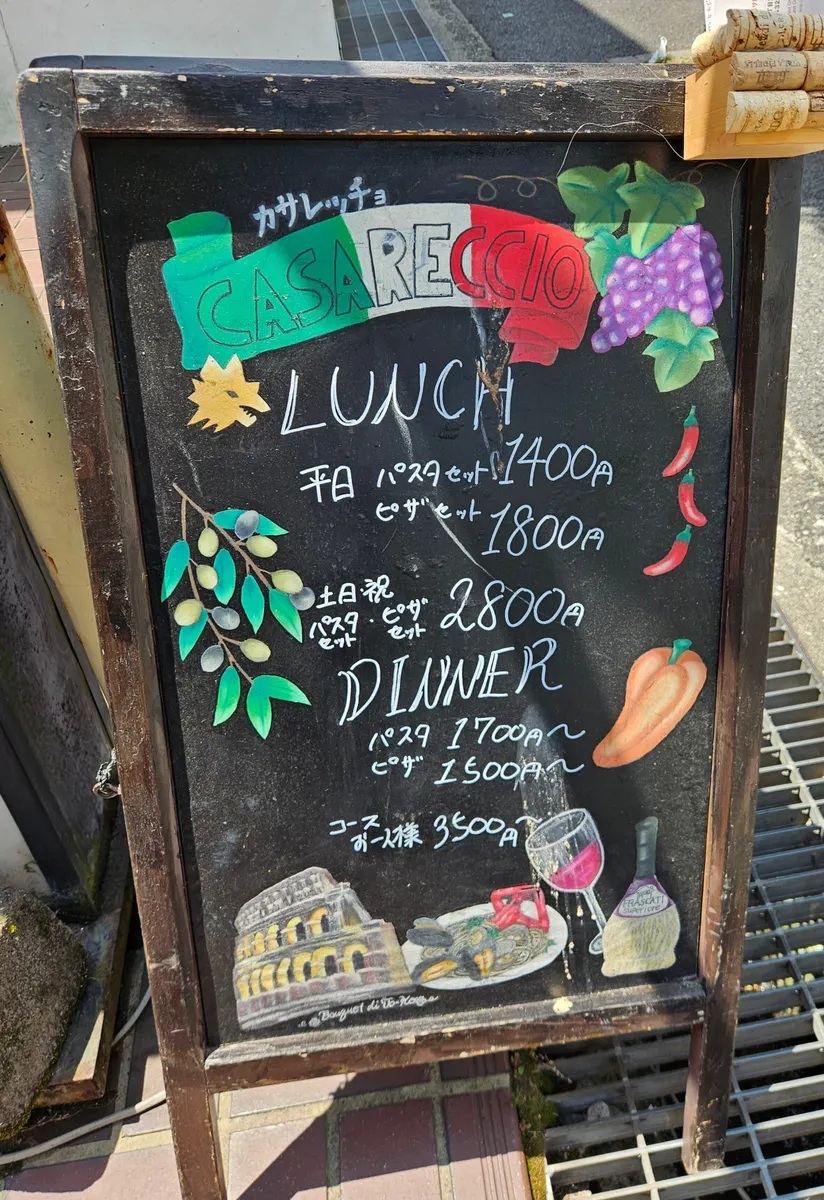 カサレッチョ
CASARECCIO
LUNCH
平日 パスタセット 1400円
ピザセット 1800円
土日・祝
パスタセット・ピザセット 2800円
DINNER
パスタ 1700円〜
ピザ 1500円〜
コース
お一人様 3500円〜
FRASCATI
SUPERIORE